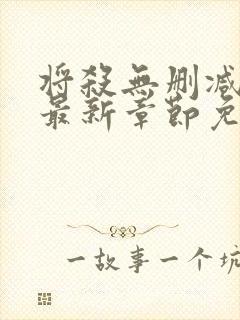 将殺無删减
最新章節免
一故事一个坑